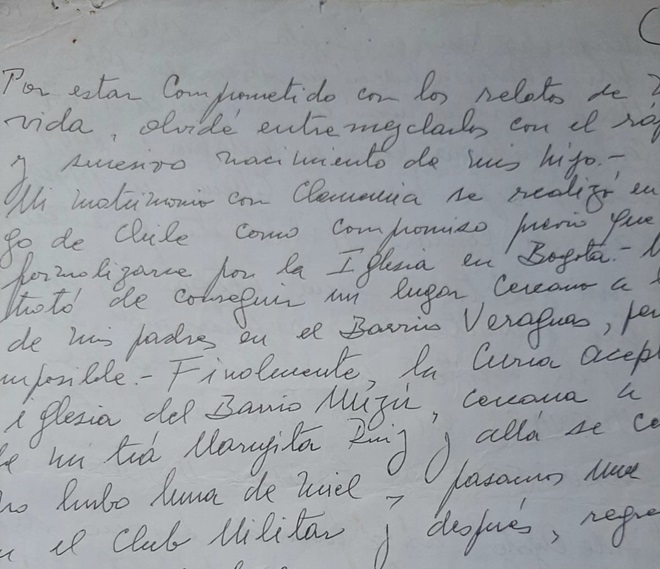 Por estar Comprometido con los relatos de
vida, olvidé entremezclarlos con el
y sucesivo nacimiento de mis hijo.-
Mi matrimonio con Clemencia se realizó en
go de Chile como compromiso previo que
formalizarse por la Iglesia en Bogotá.-
trató de conseguir un lugar cercano a
de mis padres en el Barrio Veraguas,
mposible.- Finalmente, la Curia
iglesia del Barrio Muzú, cercana a
de mi tía Margita Ruiz y allá se
no hubo luna de miel, pasamos una
el Club Militar y después,